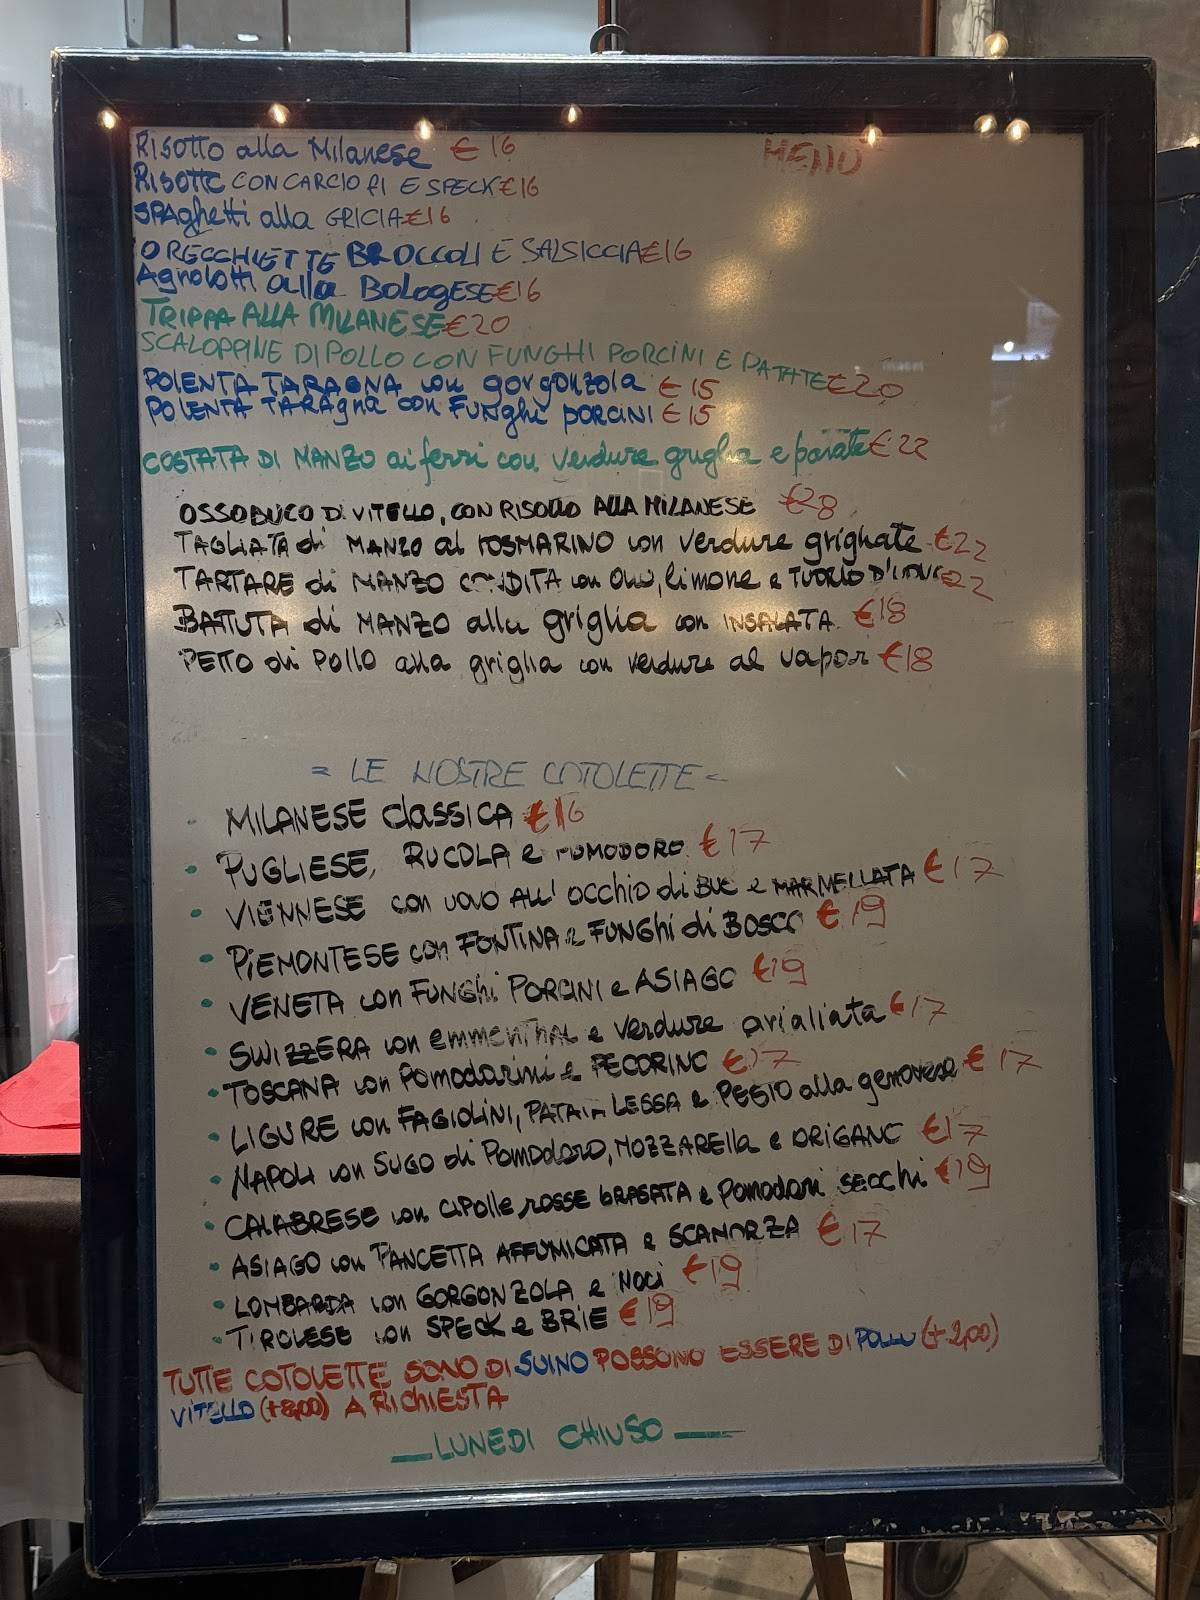 MENU
Risotto alla Milanese € 16
Risotto CON CARCIOFI E SPECK €16
SPAghetti alla GRICIA €16
ORECCHIETTE BROCCOLI E SALSICCIA €16
Agnolotti alla Bologese €16
TRIPPA ALLA MILANESE €20
SCALOPPINE DI POLLO CON FUNGHI PORCINI E PATATE €20
POLENTA TARAGNA con gorgonzola € 15
POLENTA TARAgna con Funghi porcini € 15
COSTATA DI MANZO ai ferri con verdure griglia e patate €22
OSSOBUCO DI VITELLO, CON RISOTTO ALLA MILANESE €28
TAGLIATA di MANZO al ROSMARINO con verdure grigliate €22
TARTARE di MANZO CONDITA con Olio, limone e TUORLO D'UOVO €22
BATTUTA di MANZO alla griglia con INSALATA €18
PETTO di POLLO alla griglia con verdure al vapore €18
= LE NOSTRE COTOLETTE =
• MILANESE classica €16
• PUGLIESE, RUCOLA e POMODORO € 17
• VIENNESE con uovo ALL'OCCHIO di BUE e MARMELLATA € 17
• PIEMONTESE con FONTINA e FUNGHI di BOSCO € 19
• VENETA con FUNGHI PORCINI e ASIAGO €19
• SWIZZERA con emmenthal e verdure €17
• TOSCANA con Pomodorini e PECORINO €17
• LIGURE con FAGIOLINI, PATATA LESSA e PESTO alla genovese € 17
• NAPOLI con SUGO di Pomodoro, MOZZARElla e ORIGANO €17
• CALABRESE con cipolle rosse brasata e pomodori secchi €19
• ASIAGO con PANCETTA AFFUMICATA e SCAMORZA € 17
• LOMBARDA con GORGONZOLA e Noci €19
• TIROLESE con SPECK e BRIE €19
TUTTE COTOLETTE SONO DI SUINO POSSONO ESSERE DI POLLO (+2,00)
VITELLO (+8,00) A RICHIESTA
LUNEDI CHIUSO